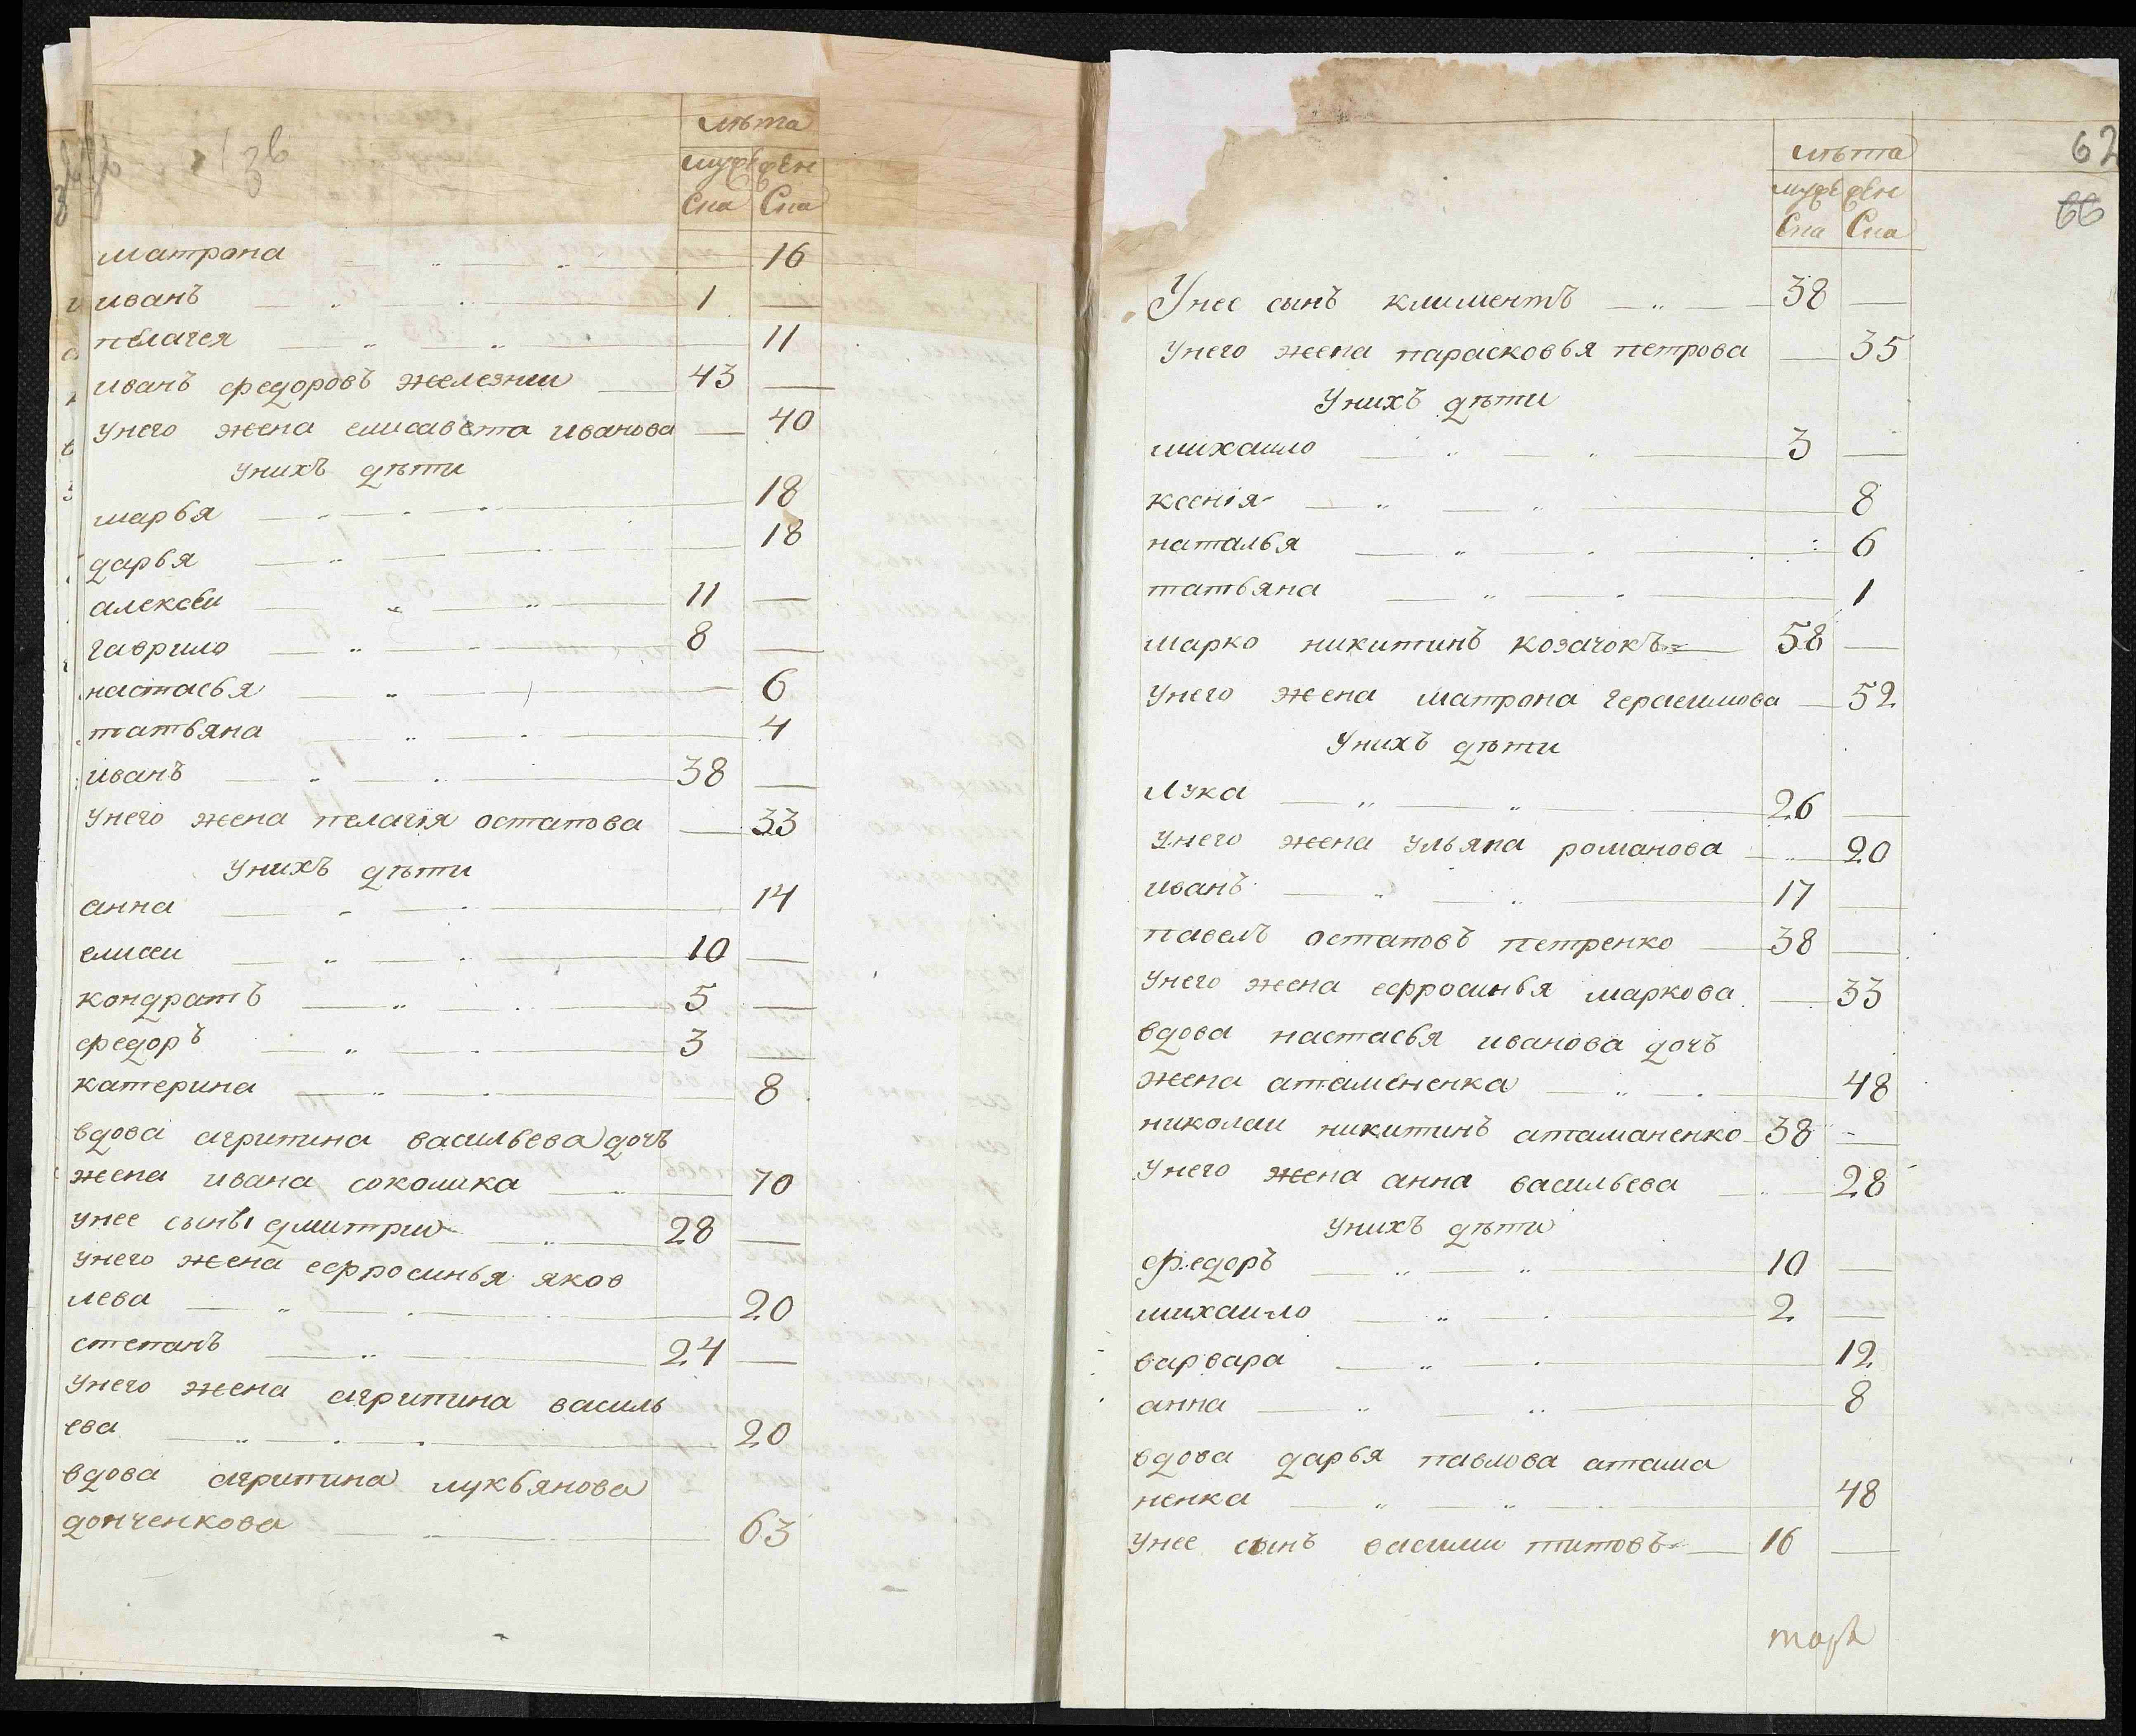 лѣта
муже жен
ска ска
матрона 16
иванъ 1
пелагея 11
иванъ федоровъ железнии 43
унего жена елисавета иванова 40
унихъ дѣти
марья 18
дарья 18
алексеи 11
гаврило 8
настасья 6
татьяна 4
иванъ 38
унего жена пелагія остапова 33
унихъ дѣти
анна 14
елисеи 10
кондратъ 5
федоръ 3
катерина 8
вдова агрипина васильева дочъ
жена ивана соколика 70
унее сынъ дмитрии 28
унего жена ефросинья яков
лева 20
степанъ 24
унего жена агрипина василь
ева 20
вдова агрипина лукьянова
донченкова 63
62
66
лѣта
муже жен
ска ска
Унее сынъ климентъ 38
унего жена парасковья петрова 35
Унихъ дѣти
михаило 3
ксенія 8
наталья 6
татьяна 1
марко никитинъ козачокъ 58
унего жена матрона герасимова 52
Унихъ дѣти
Лука 26
унего жена ульяна романова 20
иванъ 17
павелъ остаповъ петренко 38
унего жена ефросинья маркова 33
вдова настасья иванова дочъ
жена атамененка 48
николаи никитинъ атаманенко 38
Унего жена анна васильева 28
унихъ дѣти
федоръ 10
михаило 2
варвара 12
анна 8
вдова дарья павлова атама
ненка 48
унее сынъ василии титовъ 16